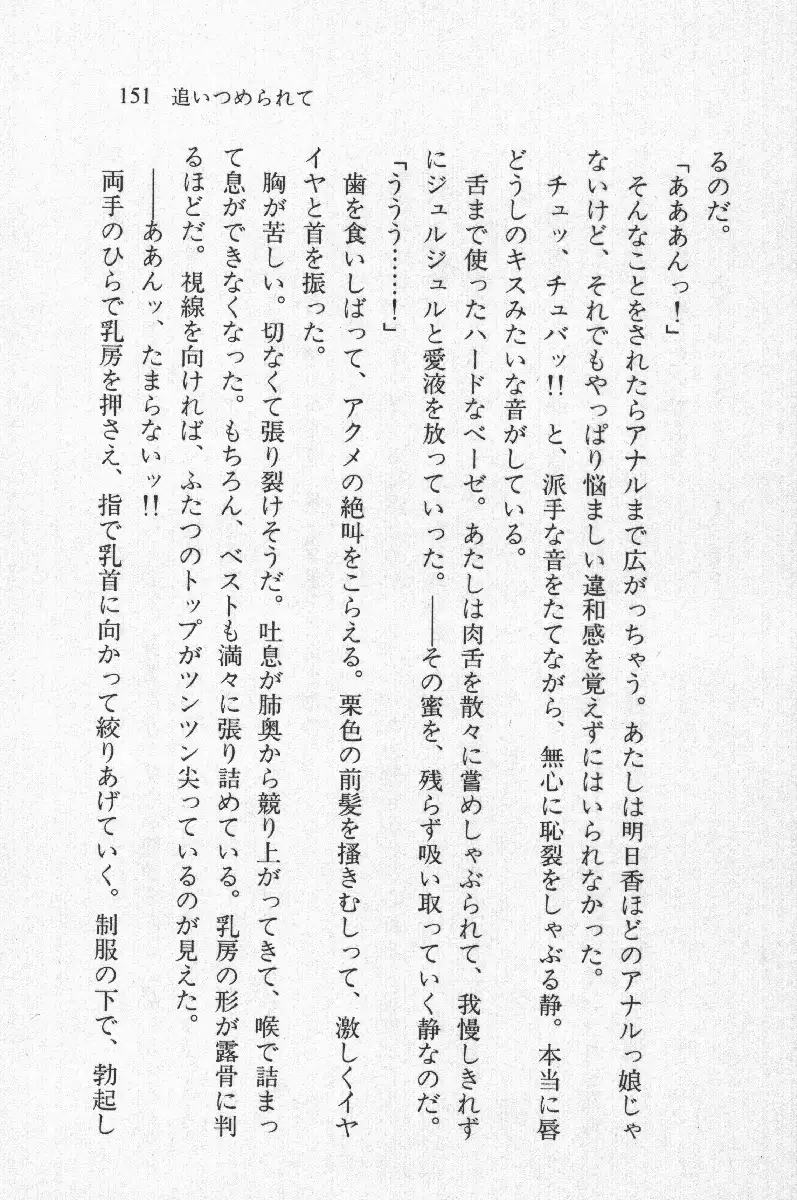 151 追いつめられて
るのだ。
「あああんっ！」
そんなことをされたらアナルまで広がっちゃう。あたしは明日香ほどのアナルっ娘じゃ
ないけど、それでもやっぱり悩ましい違和感を覚えずにはいられなかった。
チュッ、チュバッ!! と、派手な音をたてながら、無心に恥裂をしゃぶる静。本当に唇
どうしのキスみたいな音がしている。
舌まで使ったハードなベーゼ。あたしは肉舌を散々に嘗めしゃぶられて、我慢しきれず
にジュルジュルと愛液を放っていった。――その蜜を、残らず吸い取っていく静なのだ。
「ううう……！」
歯を食いしばって、アクメの絶叫をこらえる。栗色の前髪を掻きむしって、激しくイヤ
イヤと首を振った。
胸が苦しい。切なくて張り裂けそうだ。吐息が肺奥から競り上がってきて、喉で詰まっ
て息ができなくなった。もちろん、ベストも満々に張り詰めている。乳房の形が露骨に判
るほどだ。視線を向ければ、ふたつのトップがツンツン尖っているのが見えた。
――ああんッ、たまらないッ!!
両手のひらで乳房を押さえ、指で乳首に向かって絞りあげていく。制服の下で、勃起し